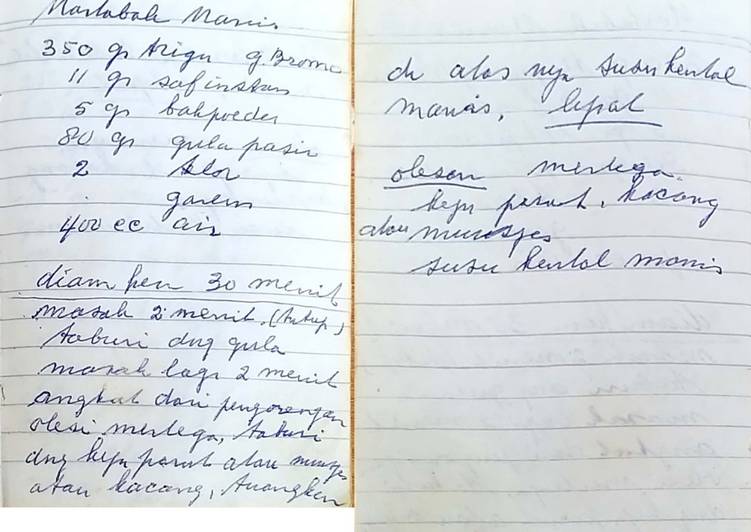 Martabak Manis
350 gr trigu g Bromo
11 gr saf instan
5 gr bakpoeder
80 gr gula pasir
2 telor
garem
400 cc air
diam ken 30 menit
masak 2 menit, (tutup)
taburi dng gula
masak lagi 2 menit
angkat dari pengorengan
olesi mertega, taburi
dng keju parut atau muisjes
atau kacang, tuangken
di atas nya susu kental
manis, lipat
olesan mertega.
keju parut, kacang
atau muisjes
susu kental manis